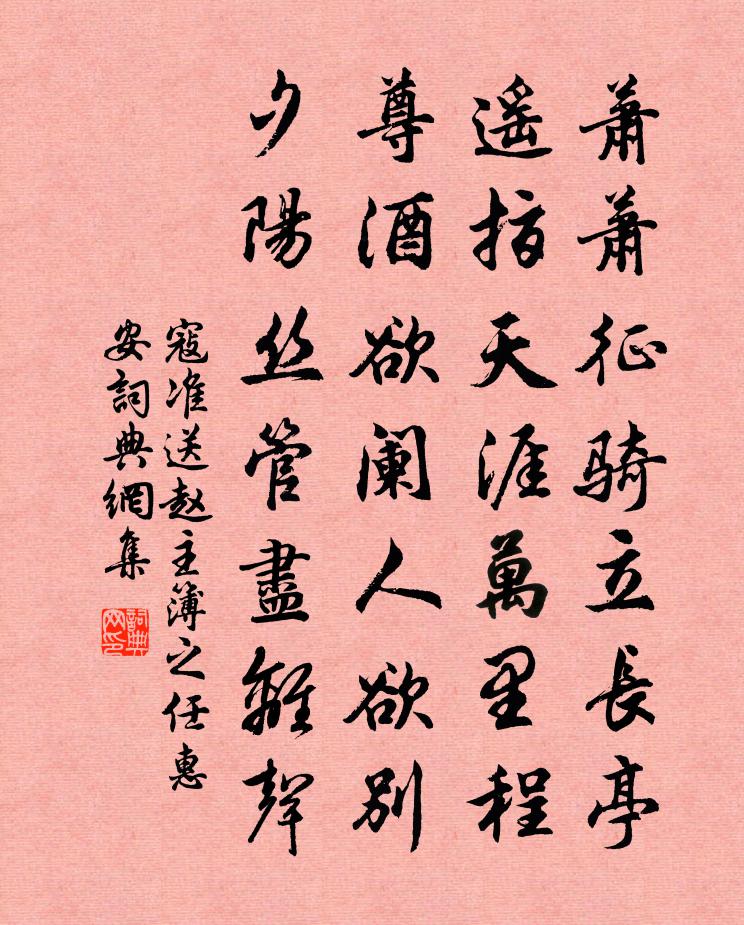 蕭蕭征騎立長亭
遥指天涯萬里程
尊酒欲阑人欲別
夕陽丝管盡離聲
寇准送赵主簿之任惠
安詞典網集
詞典网印